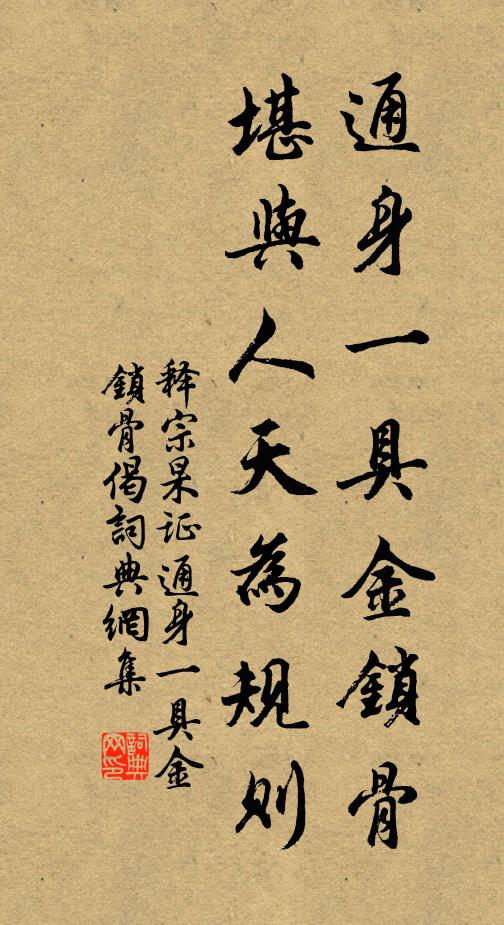 通身一具金鎖骨
堪與人天為規則
释宗杲证通身一具金
鎖骨偈詞典網集
詞典
网印